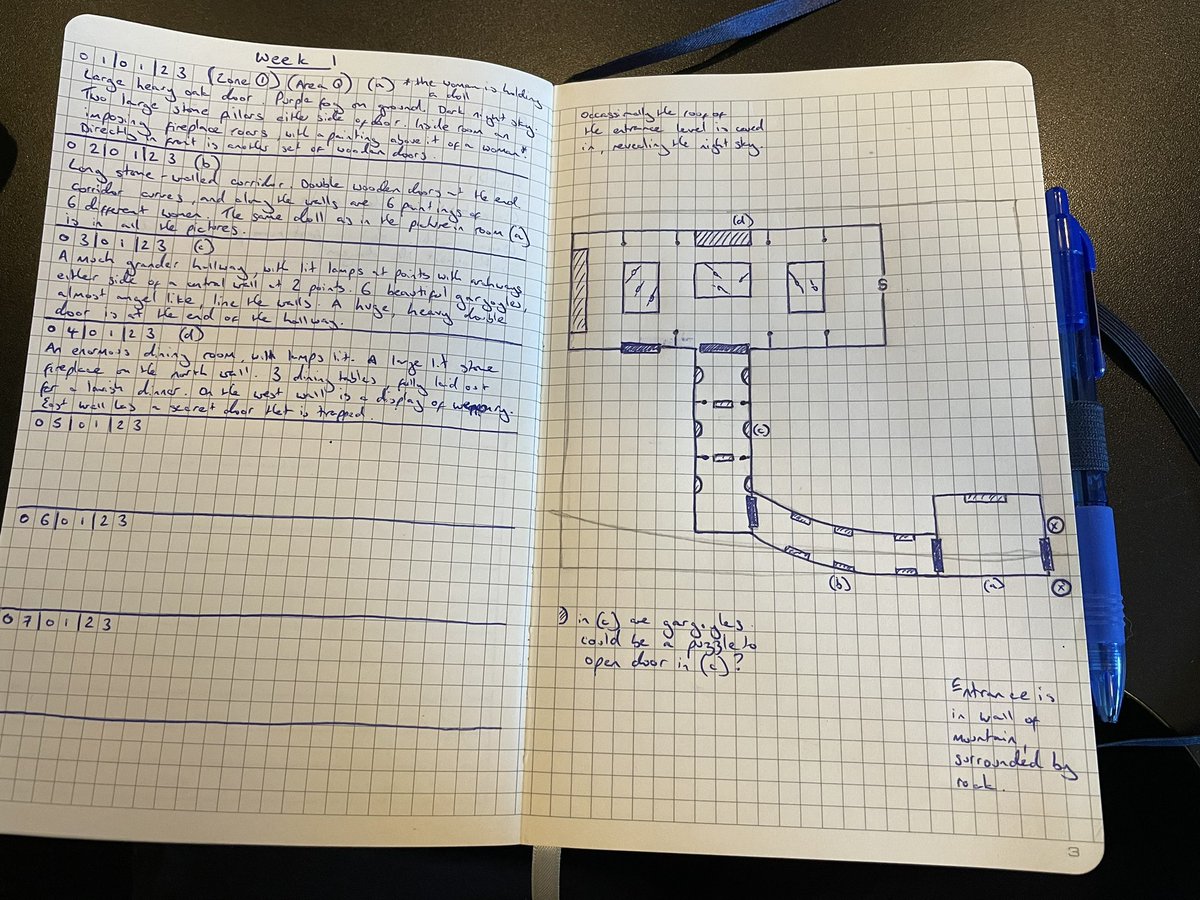 Week 1
0 1 | 0 1 | 2 3 (Zone 1) (Area 0) (a) * the woman is holding
a doll
Large heavy oak door. Purple fog on ground. Dark night sky.
Two large stone pillars either side of door. Inside room an
imposing fireplace roars, with a painting above it of a woman*.
Directly in front is another set of wooden doors.
0 2 | 0 1 | 2 3 (b)
Long stone-walled corridor. Double wooden doors at the end.
Corridor curves, and along the walls are 6 paintings of
6 different women. The same doll as in the picture in room (a)
is in all the pictures.
0 3 | 0 1 | 2 3 (c)
A much grander hallway, with lit lamps at points with archways
either side of a central wall at 2 points. 6 beautiful gargoyles,
almost angel like, line the walls. A huge, heavy double
door is at the end of the hallway.
0 4 | 0 1 | 2 3 (d)
An enormous dining room, with lamps lit. A large lit stone
fireplace on the north wall. 3 dining tables, fully laid out
for a lavish dinner. On the west wall is a display of weaponry.
East wall has a secret door that is trapped.
0 5 | 0 1 | 2 3
0 6 | 0 1 | 2 3
0 7 | 0 1 | 2 3
Occassionally the roof of
the entrance level is caved
in, revealing the night sky.
(d)
S
(c)
(b)
(a)
in (c) are gargoyles.
could be a puzzle to
open door in (c)?
Entrance is
in wall of
mountain,
surrounded by
rock.
3